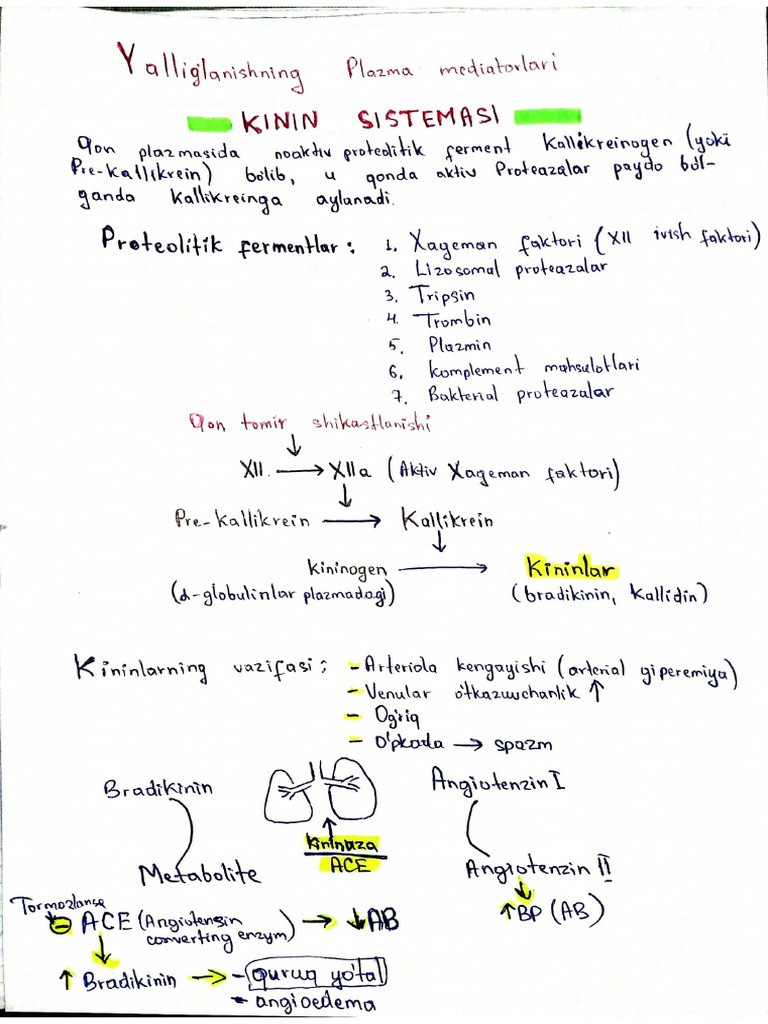 Yalliglanishning Plazma mediatorlari
KININ SISTEMASI
Qon plazmasida noaktiv proteolitik ferment Kallikreinogen (yoki
Pre-kallikrein) bo'lib, u qonda aktiv Proteazalar paydo bo'l-
ganda kallikreinga aylanadi.
Proteolitik fermentlar:
1. Xageman faktori (XII ivish faktori)
2. Lizosomal proteazalar
3. Tripsin
4. Trombin
5. Plazmin
6. Komplement mahsulotlari
7. Bakterial proteazalar
Qon tomir shikastlanishi
↓
XII. → XIIa (Aktiv Xageman faktori)
↓
Pre-kallikrein → Kallikrein
↓
kininogen → Kininlar
(α-globulinlar plazmadagi) (bradikinin, kallidin)
Kininlarning vazifasi:
- Arteriola kengayishi (arterial giperemiya)
- Venular o'tkazuvchanlik ↑
- Og'riq
- O'pkada → spazm
Bradikinin
Metabolite
↑
kininaza
ACE
Angiotenzin I
Angiotenzin II
↓
↑BP (AB)
Tormozlansa
⊖ ACE (Angiotensin converting enzym) → ↓AB
↓
↑ Bradikinin → - quruq yo'tal
- angioedema